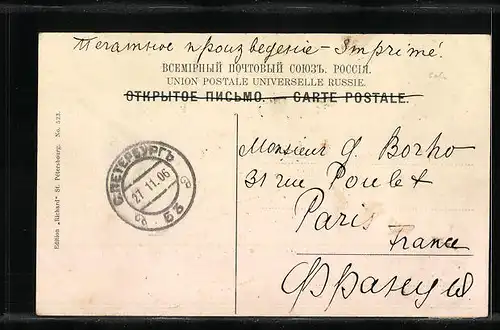 Печатное произведеніе - Imprimé.
ВСЕМІРНЫЙ ПОЧТОВЫЙ СОЮЗЪ. РОССІЯ.
UNION POSTALE UNIVERSELLE RUSSIE.
ОТКРЫТОЕ ПИСЬМО. — CARTE POSTALE.
Monsieur G. Borho
31 rue Poulet
Paris
France
Франція
С.ПЕТЕРБУРГЪ
27.11.06
Edition „Richard" St. Petersbourg. No. 523.